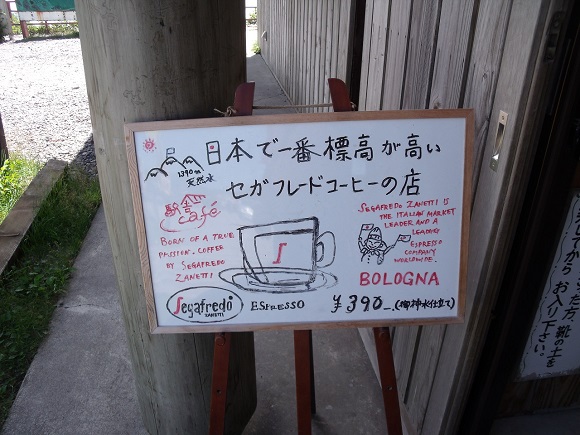 日本で一番標高が高い
1390m
天然水
セガフレードコーヒーの店
駅舎
café
BORN OF A TRUE
PASSION. COFFEE
BY SEGAFREDO
ZANETTI
S
SEGAFREDO ZANETTI IS
THE ITALIAN MARKET
LEADER AND A
LEADING
ESPRESSO
COMPANY
WORLDWIDE.
BOLOGNA
Segafredo
ZANETTI
ESPRESSO
¥390ー(御神水仕立て)
方、靴の土を
てからお入り下さい。